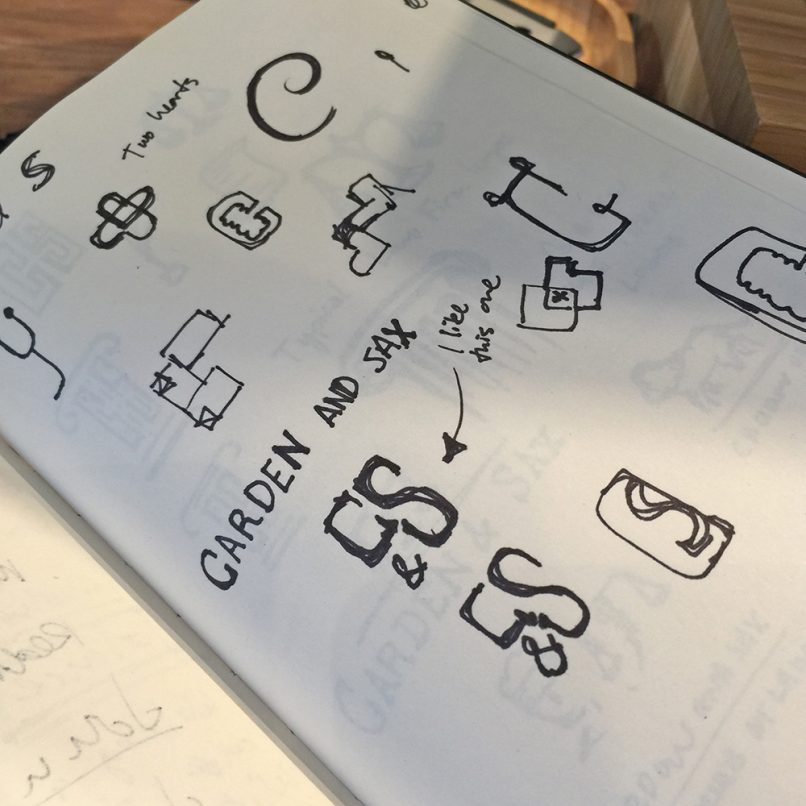 Two hearts
S
C
I like
this one
GARDEN AND SAX
GS
&
GS
&
S